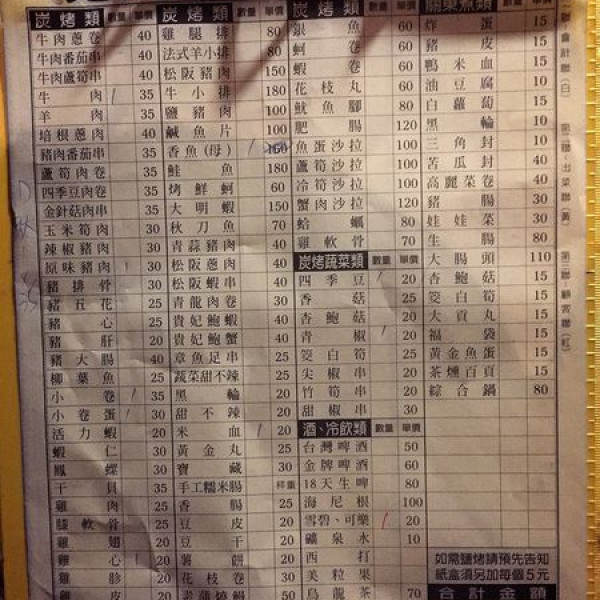 炭烤類 數量 單價
牛肉蔥卷 40
牛肉番茄串 40
牛肉蘆筍串 40
牛肉 35
羊肉 35
培根蔥肉 40
豬肉番茄串 35
蘆筍肉卷 30
四季豆肉卷 35
金針菇肉串 35
玉米筍肉 30
辣椒豬肉 35
原味豬肉 30
豬排骨 30
豬五花 25
豬心 25
豬肝 20
豬大腸 40
柳葉魚 25
小卷 35
小卷蛋 30
活力蝦 20
蝦仁 30
鳳螺 30
干貝 35
雞肉 25
膝軟骨 25
雞翅 20
雞心 20
雞胗 20
雞皮 20
炭烤類 數量 單價
雞腿排 80
法式羊小排 80
松阪豬肉 150
牛小排 180
鹽豬肉 100
鹹魚片 100
香魚(母)
鮭魚 180
烤鮮蚵 60
大明蝦 150
秋刀魚 70
青蒜豬肉 40
松阪蔥肉 40
松阪蝦串 40
青龍肉卷 30
貴妃鮑蝦 40
貴妃鮑蟹 40
章魚足串 25
蔬菜甜不辣 25
黑輪 20
甜不辣 20
米血 20
黃金丸 25
寶藏 30
手工糯米腸 秤重
香腸 25
豆皮 20
豆干 20
薯餅 20
花枝卷 30
炭烤類 數量 單價
銀魚 60
蚵卷 60
蝦卷 60
花枝丸 60
魷魚腳 80
肥腸 120
魚蛋沙拉 100
蘆筍沙拉 100
冷筍沙拉 100
蟹肉沙拉 100
蛤蠣 80
雞軟骨 30
炭烤蔬菜類 數量 單價
四季豆 20
香菇 25
杏鮑菇 20
青椒 20
筊白筍 25
尖椒串 20
竹筍串 20
甜椒串 30
酒、冷飲類 數量 單價
台灣啤酒 50
金牌啤酒 60
18天生啤 80
海尼根 100
雪碧、可樂 20
礦泉水 10
西打
美粒果
烏龍茶
關東煮類
炸蛋 15
豬皮 15
鴨米血 15
油豆腐 10
白蘿蔔 15
黑輪 10
三角封 10
苦瓜封 40
高麗菜卷 40
豬腸 30
娃娃菜 30
生腸 80
大腸頭 110
杏鮑菇 15
筊白筍 15
大貢丸 15
福袋 15
黃金魚蛋 15
茶燻百頁 15
綜合鍋 80
如需鹽烤請預先告知
紙盒須另加每個5元
合計金額
第二聯:出菜聯(黃)
第三聯:顧客聯(紅)